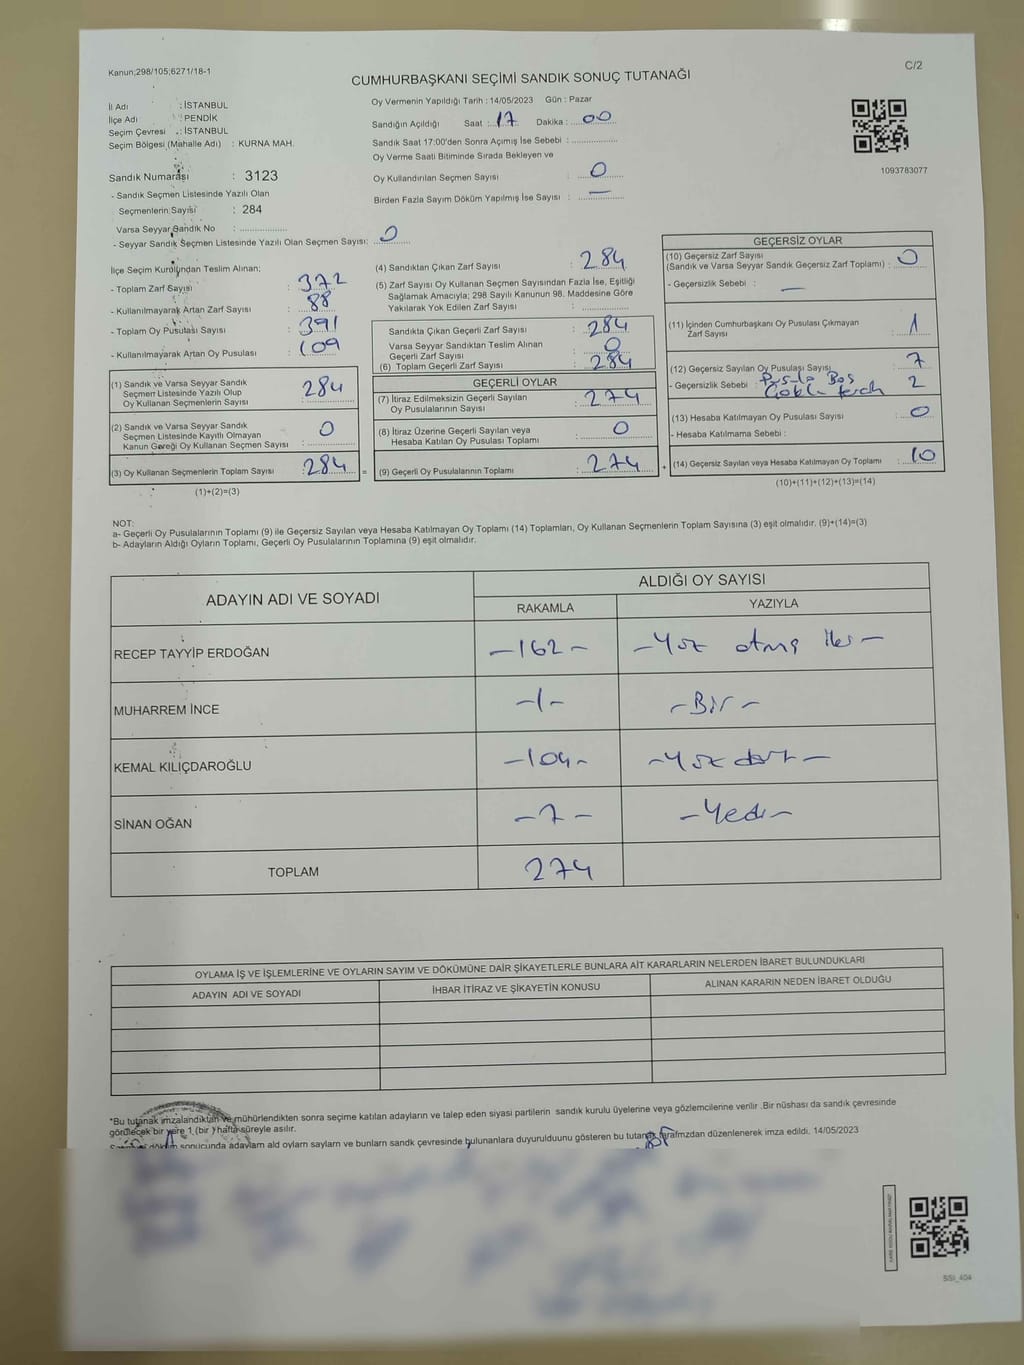 Kanun;298/105;6271/18-1
C/2
CUMHURBAŞKANI SEÇİMİ SANDIK SONUÇ TUTANAĞI
İl Adı : İSTANBUL
İlçe Adı : PENDİK
Seçim Çevresi : İSTANBUL
Seçim Bölgesi (Mahalle Adı) : KURNA MAH.
Sandık Numarası : 3123
- Sandık Seçmen Listesinde Yazılı Olan
Seçmenlerin Sayısı : 284
Varsa Seyyar Sandık No :
- Seyyar Sandık Seçmen Listesinde Yazılı Olan Seçmen Sayısı: 0
Oy Vermenin Yapıldığı Tarih : 14/05/2023 Gün : Pazar
Sandığın Açıldığı Saat : 17 Dakika : 00
Sandık Saat 17:00'den Sonra Açımış İse Sebebi :
Oy Verme Saati Bitiminde Sırada Bekleyen ve
Oy Kullandırılan Seçmen Sayısı : 0
Birden Fazla Sayım Döküm Yapılmış İse Sayısı : —
1093783077
İlçe Seçim Kurulundan Teslim Alınan;
- Toplam Zarf Sayısı : 372
- Kullanılmayarak Artan Zarf Sayısı : 88
- Toplam Oy Pusulası Sayısı : 391
- Kullanılmayarak Artan Oy Pusulası : 109
(1) Sandık ve Varsa Seyyar Sandık
Seçmen Listesinde Yazılı Olup
Oy Kullanan Seçmenlerin Sayısı : 284
(2) Sandık ve Varsa Seyyar Sandık
Seçmen Listesinde Kayıtlı Olmayan
Kanun Gereği Oy Kullanan Seçmen Sayısı : 0
(3) Oy Kullanan Seçmenlerin Toplam Sayısı : 284 =
(1)+(2)=(3)
(4) Sandıktan Çıkan Zarf Sayısı : 284
(5) Zarf Sayısı Oy Kullanan Seçmen Sayısından Fazla İse, Eşitliği
Sağlamak Amacıyla; 298 Sayılı Kanunun 98. Maddesine Göre
Yakılarak Yok Edilen Zarf Sayısı :
Sandıkta Çıkan Geçerli Zarf Sayısı : 284
Varsa Seyyar Sandıktan Teslim Alınan
Geçerli Zarf Sayısı : 0
(6) Toplam Geçerli Zarf Sayısı : 284
GEÇERLİ OYLAR
(7) İtiraz Edilmeksizin Geçerli Sayılan
Oy Pusulalarının Sayısı : 274
(8) İtiraz Üzerine Geçerli Sayılan veya
Hesaba Katılan Oy Pusulası Toplamı : 0
(9) Geçerli Oy Pusulalarının Toplamı : 274 +
GEÇERSİZ OYLAR
(10) Geçersiz Zarf Sayısı
(Sandık ve Varsa Seyyar Sandık Geçersiz Zarf Toplamı) : 0
- Geçersizlik Sebebi : —
(11) İçinden Cumhurbaşkanı Oy Pusulası Çıkmayan
Zarf Sayısı : 1
(12) Geçersiz Sayılan Oy Pusulası Sayısı : 7
- Geçersizlik Sebebi : Pusula Boş 2
(13) Hesaba Katılmayan Oy Pusulası Sayısı : 0
- Hesaba Katılmama Sebebi :
(14) Geçersiz Sayılan veya Hesaba Katılmayan Oy Toplamı : 10
(10)+(11)+(12)+(13)=(14)
NOT:
a- Geçerli Oy Pusulalarının Toplamı (9) ile Geçersiz Sayılan veya Hesaba Katılmayan Oy Toplamı (14) Toplamları, Oy Kullanan Seçmenlerin Toplam Sayısına (3) eşit olmalıdır. (9)+(14)=(3)
b- Adayların Aldığı Oyların Toplamı, Geçerli Oy Pusulalarının Toplamına (9) eşit olmalıdır.
ADAYIN ADI VE SOYADI
ALDIĞI OY SAYISI
RAKAMLA YAZIYLA
RECEP TAYYİP ERDOĞAN -162- -Yüz atmış iki-
MUHARREM İNCE -1- -Bir-
KEMAL KILIÇDAROĞLU -104- -Yüz dört-
SİNAN OĞAN -7- -Yedi-
TOPLAM 274
OYLAMA İŞ VE İŞLEMLERİNE VE OYLARIN SAYIM VE DÖKÜMÜNE DAİR ŞİKAYETLERLE BUNLARA AİT KARARLARIN NELERDEN İBARET BULUNDUKLARI
ADAYIN ADI VE SOYADI İHBAR İTİRAZ VE ŞİKAYETİN KONUSU ALINAN KARARIN NEDEN İBARET OLDUĞU
*Bu tutanak imzalandıktan ve mühürlendikten sonra seçime katılan adayların ve talep eden siyasi partilerin sandık kurulu üyelerine veya gözlemcilerine verilir .Bir nüshası da sandık çevresinde
görülecek bir yere 1 (bir ) hafta süreyle asılır.
sonucunda adayların ald oyların sayların ve bunların sandk çevresinde bulunanlara duyurulduunu gösteren bu tutanak tarafmzdan düzenlenerek imza edildi. 14/05/2023
SSI_404